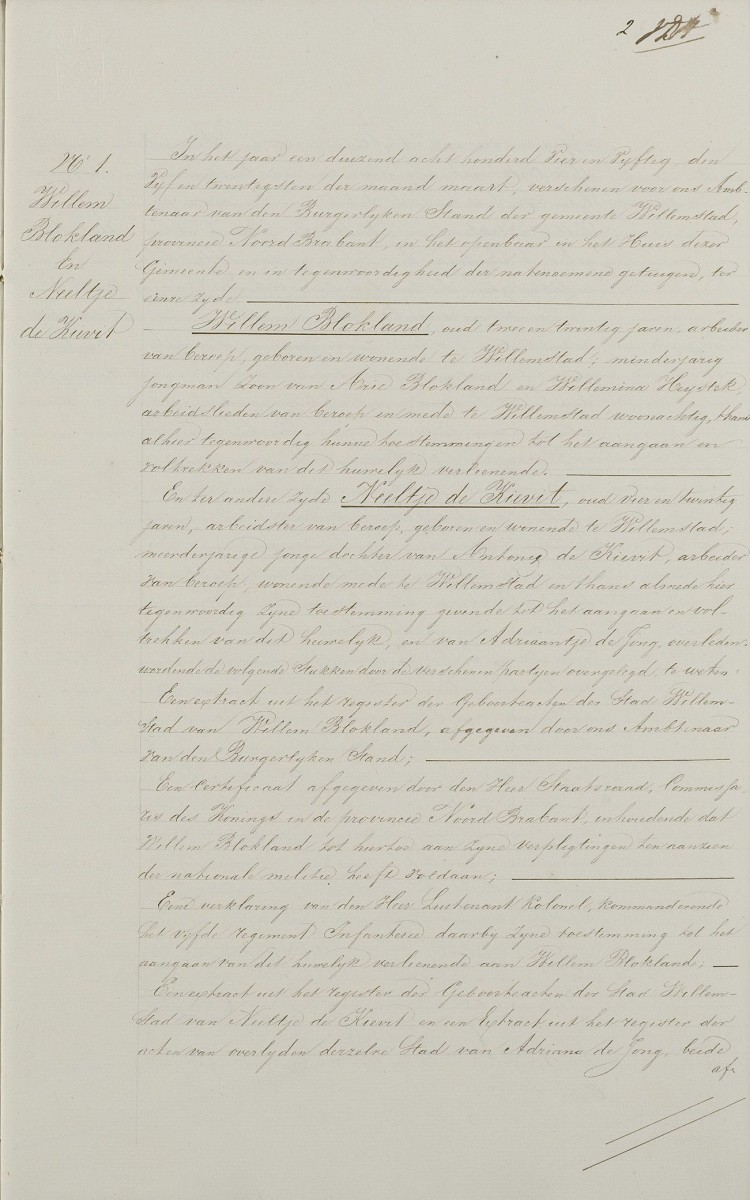 2
No 1.
Willem
Blokland
en
Neeltje
de Kievit
In het jaar een duizend acht honderd Vier en Vyftig, den
Vyf en twintigsten der maand maart, verschenen voor ons Amb-
tenaar van den Burgerlyken Stand der gemeente Willemstad,
provincie Noord Braband, in het openbaar in het Huis dezer
Gemeente en in tegenwoordigheid der natenoemene getuigen, ter
eenre zyde
Willem Blokland, oud twee en twintig jaren, arbeider
van beroep, geboren en wonende te Willemstad; minderjarig
jongman Zoon van Arie Blokland en Willemina Hystek,
arbeidslieden van beroep en mede te Willemstad woonachtig, thans
alhier tegenwoordig hunne toestemmingen tot het aangaan en
voltrekken van dit huwelyk verleenende.
En ter andere zyde Neeltje de Kievit, oud vier en twintig
jaren, arbeidster van beroep, geboren en wonende te Willemstad;
meerderjarige jonge dochter van Antonij de Kievit, arbeider
van beroep, wonende mede te Willemstad en thans almede hier
tegenwoordig zyne toestemming gevende tot het aangaan en vol-
trekken van dit huwelyk, en van Adriaantje de Jong, overleden.
wordende de volgende Stukken door de verschenen partyen overgelegd, te weten:
Een extract uit het register der Geboorteacten der Stad Willem-
Stad van Willem Blokland, afgegeven door ons Ambtenaar
van den Burgerlyken Stand;
Een Certificaat afgegeven door den Heer Staatsraad, Commissa-
ris des Konings in de provincie Noord Braband, inhoudende dat
Willem Blokland tot hiertoe aan zyne verpligtingen ten aanzien
der nationale militie heeft voldaan;
Eene verklaring van den Heer Luitenant Kolonel, kommanderende
het vyfde regiment Infanterie daarby zyne toestemming tot het
aangaan van dit huwelyk verleenende aan Willem Blokland;
Een extract uit het register der Geboorteacten der Stad Willem-
Stad van Neeltje de Kievit en een Extract uit het register der
acten van overlyden derzelve Stad van Adriana de Jong, beide
af-